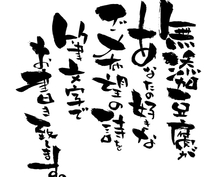 無添加豆腐が
あなたの好きな
ご希望の詩を
筆文字で
お書き致します。